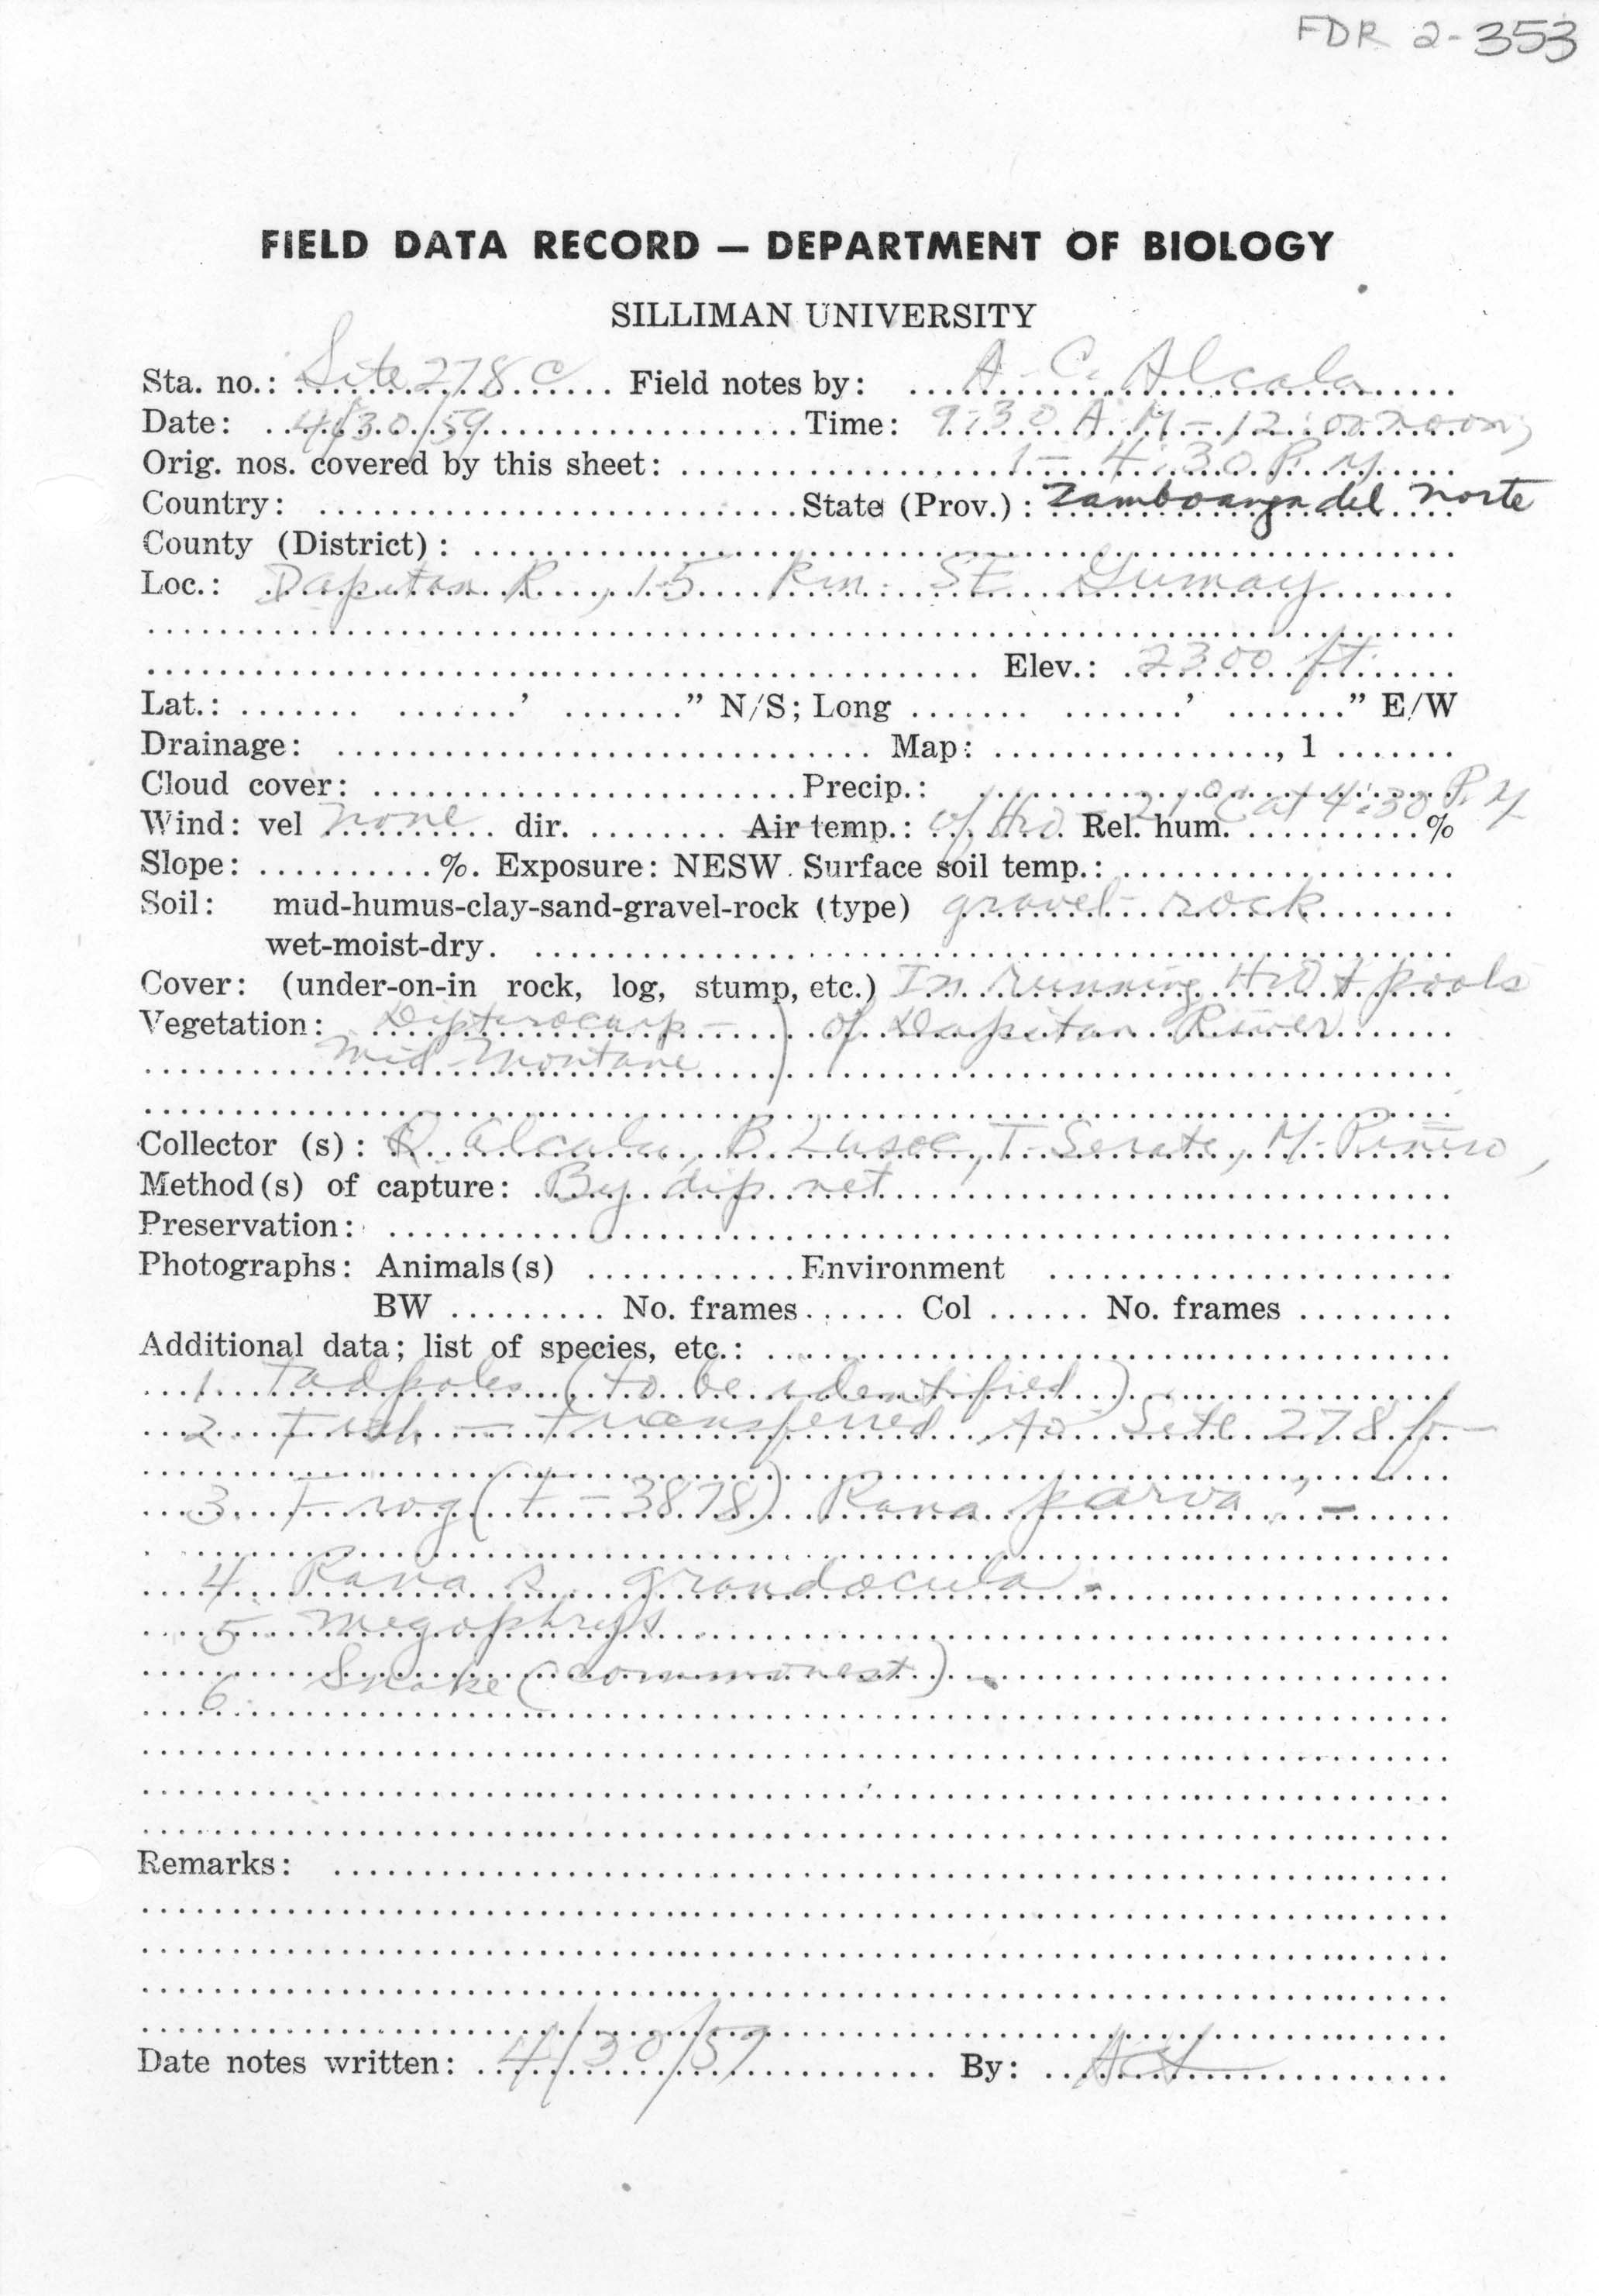 FDR 2-353
FIELD DATA RECORD — DEPARTMENT OF BIOLOGY
SILLIMAN UNIVERSITY
Sta. no.: Site 278 C Field notes by: A. C. Alcala
Date: 4/30/59 Time: 9:30 A.M - 12:00 noon;
Orig. nos. covered by this sheet: 1 - 4:30 P.M
Country: State (Prov.): Zamboanga del Norte
County (District):
Loc.: Dapitan R., 15 km. SE Gumay
Elev.: 2300 ft.
Lat.: ' " N/S; Long ' " E/W
Drainage: Map: , 1
Cloud cover: Precip.:
Wind: vel none dir. Air temp.: of H2O 21°C at 4:30 P.M Rel. hum. %
Slope: %. Exposure: NESW. Surface soil temp.:
Soil: mud-humus-clay-sand-gravel-rock (type) gravel - rock
wet-moist-dry.
Cover: (under-on-in rock, log, stump, etc.) In running H2O & pools
Vegetation: Dipterocarp - ) of Dapitan River
mid-montane
Collector (s): A. Alcala, B. Lusoc, T. Serate, M.
Method(s) of capture: By dip net
Preservation:
Photographs: Animals(s) Environment
BW No. frames Col No. frames
Additional data; list of species, etc.:
1. Tadpoles (to be identified)
2. Fish — transferred to Site 278 f -
3. Frog (t - 3878) Rana parva " -
4. Rana s. grandocula -
5. Megophrys
6. Snake (commonest) -
Remarks:
Date notes written: 4/30/59 By: